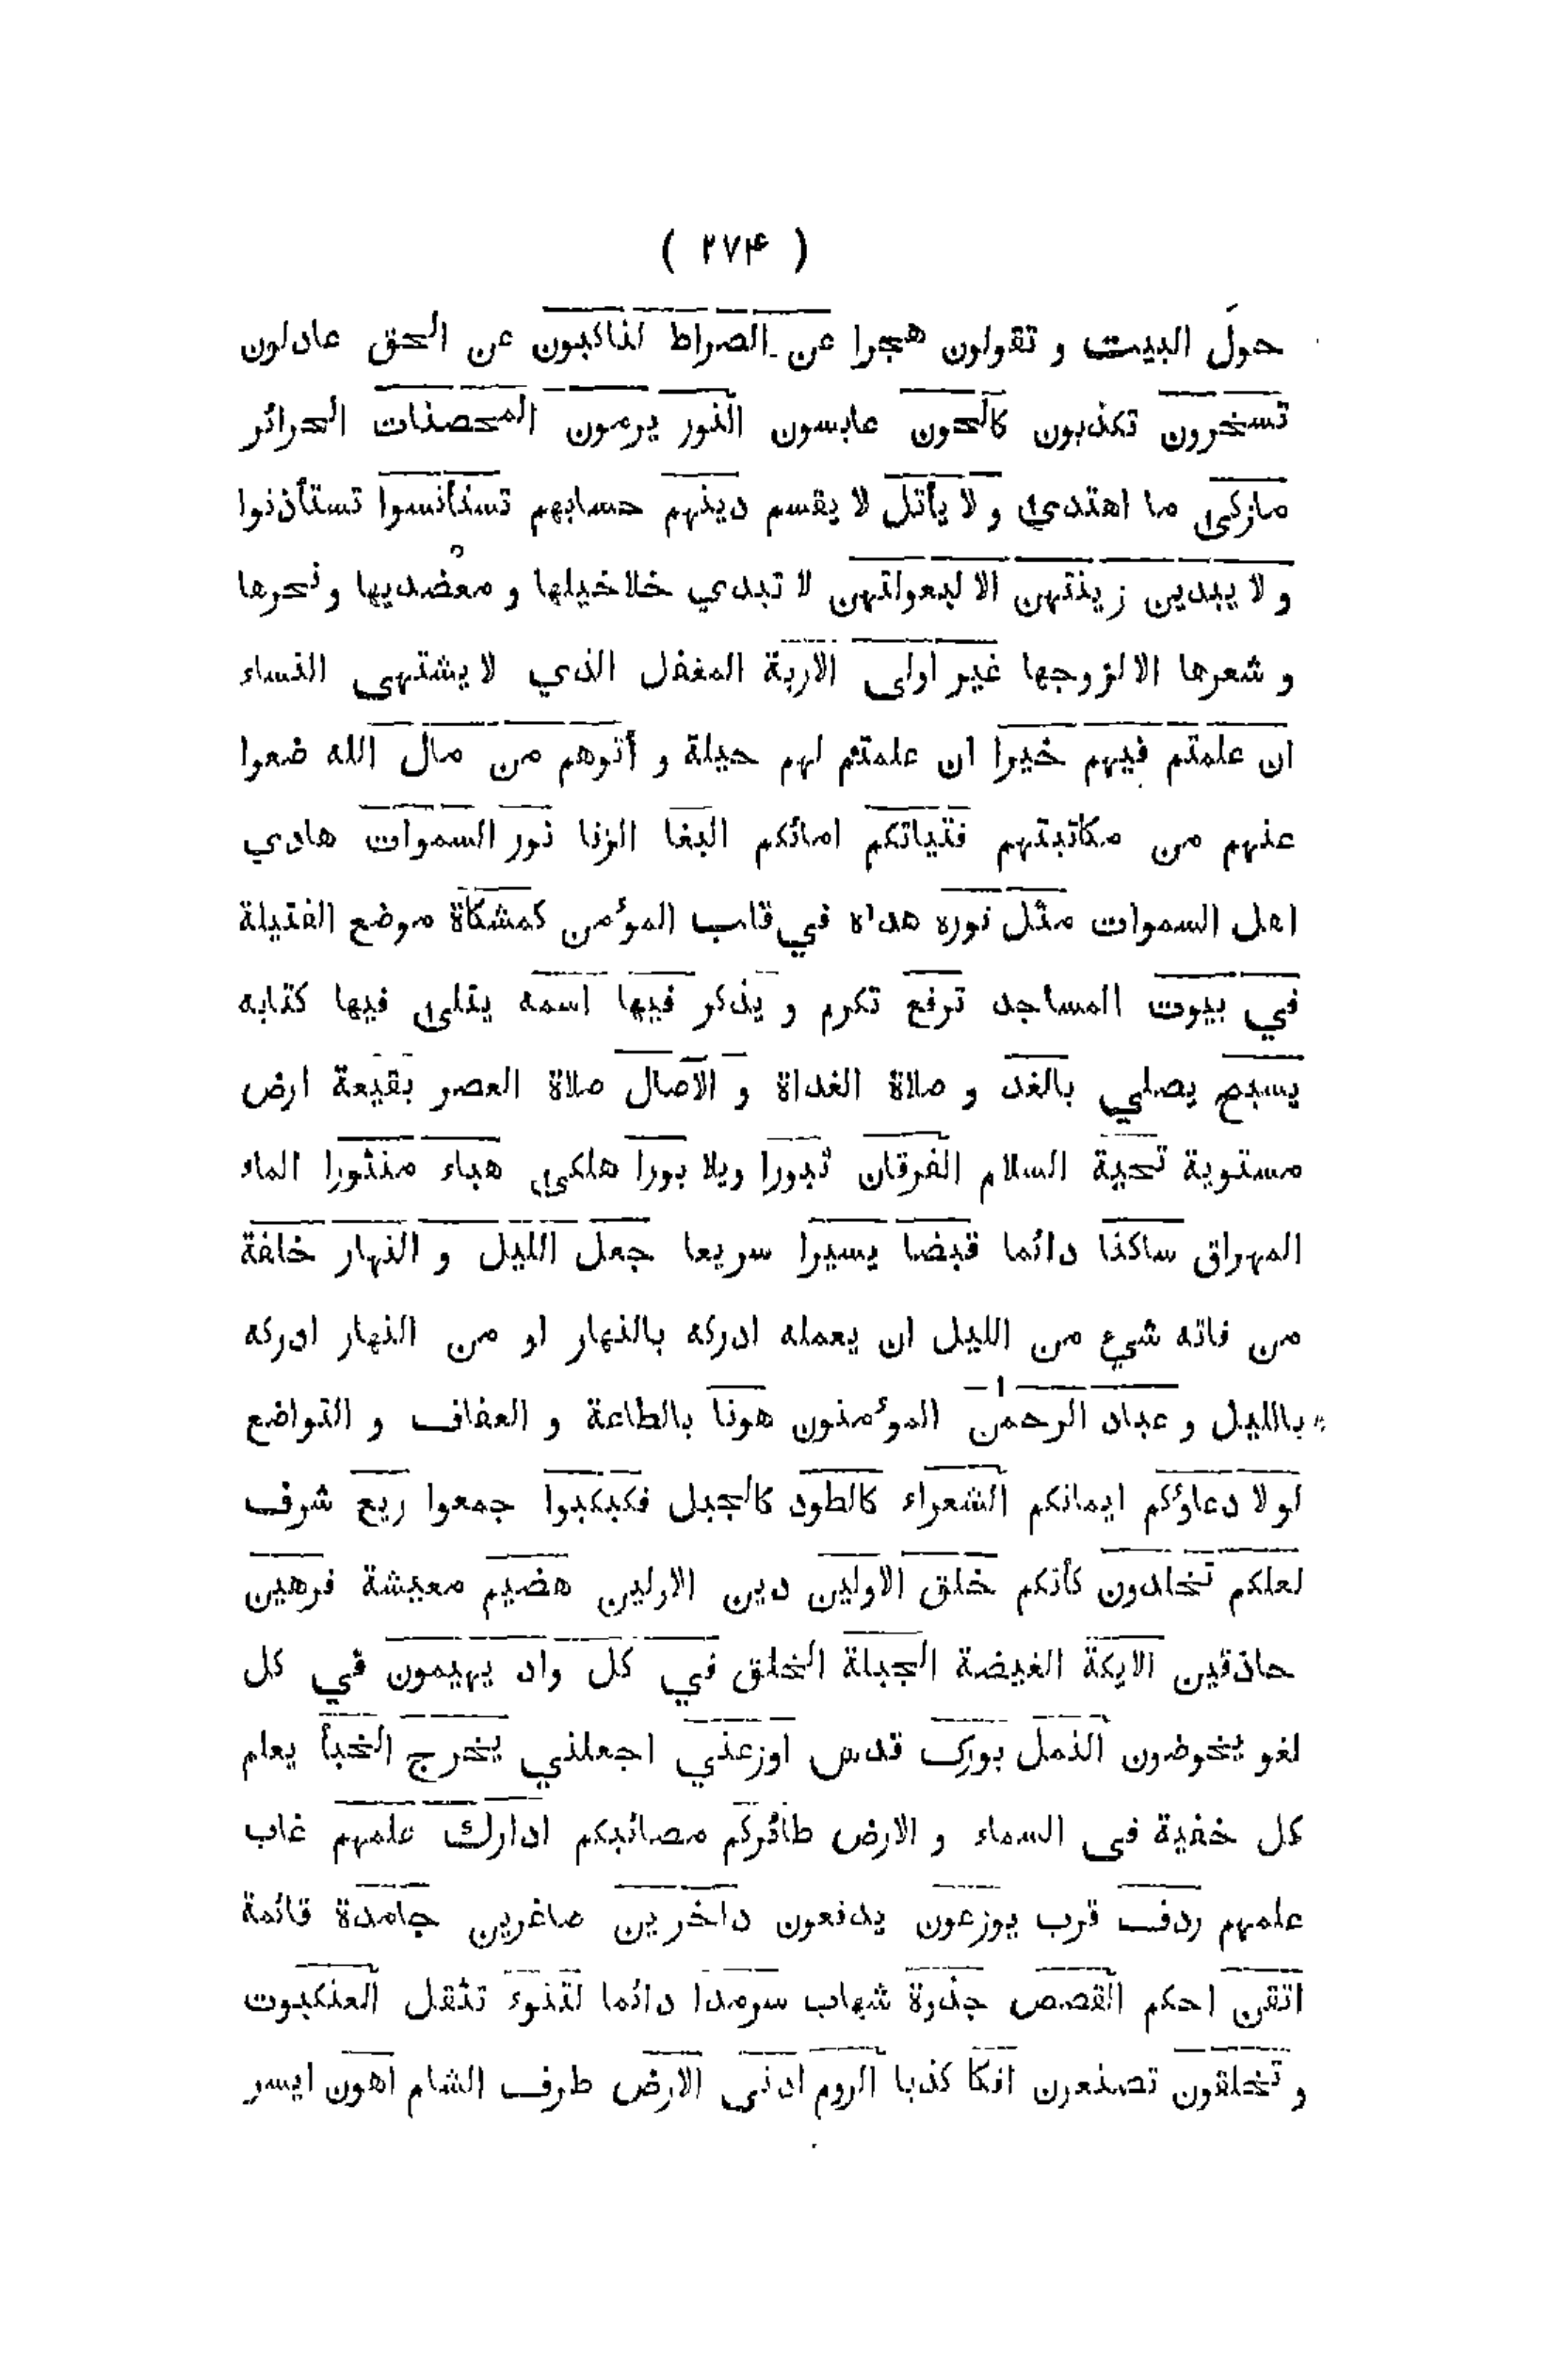 ( ٢٧۴ )
حولَ البيت و تقولون هجرا عن الصراط لناكبون عن الحق عادلون
تسخرون تكذبون كالحون عابسون النور يرمون المحصنات الحرائر
مازكى ما اهتدى و لا يأتل لا يقسم دينهم حسابهم تستأنسوا تستأذنوا
و لا يبدين زينتهن الا لبعولتهن لا تبدي خلاخيلها و معضديها و نحرها
و شعرها الا لزوجها غير اولى الاربة المغفل الذي لا يشتهى النساء
ان علمتم فيهم خيرا ان علمتم لهم حيلة و أتوهم من مال الله ضعوا
عنهم من مكاتبتهم فتياتكم امائكم البغا الزنا نور السموات هادي
اهل السموات مثل نوره هداه في قلب المؤمن كمشكاة موضع الفتيلة
في بيوت المساجد ترفع تكرم و يذكر فيها اسمه يتلى فيها كتابه
يسبح يصلي بالغد و صلاة الغداة و الآصال صلاة العصر بقيعة ارض
مستوية تحية السلام الفرقان ثبورا ويلا بورا هلكى هباء منثورا الماء
المهراق ساكنا دائما قبضا يسيرا سريعا جعل الليل و النهار خلفة
من فاته شيء من الليل ان يعمله ادركه بالنهار او من النهار ادركه
بالليل و عباد الرحمٰن المؤمنون هونا بالطاعة و العفاف و التواضع
لولا دعاؤكم ايمانكم الشعراء كالطود كالجبل فكبكبوا جمعوا ريع شرف
لعلكم تخلدون كأنكم خلق الاولين دين الاولين هضيم معيشة فرهين
حاذقين الايكة الغيضة الجبلة الخلق في كل واد يهيمون في كل
لغو يخوضون النمل بورك قدس اوزعني اجعلني يخرج الخبأ يعلم
كل خفية فى السماء و الارض طائركم مصائبكم ادارك علمهم غاب
علمهم ردف قرب يوزعون يدفعون داخرين صاغرين جامدة قائمة
اتقن احكم القصص جذوة شهاب سرمدا دائما لتنوء تثقل العنكبوت
و تخلقون تصنعون افكا كذبا الروم ادنى الارض طرف الشام اهون ايسر